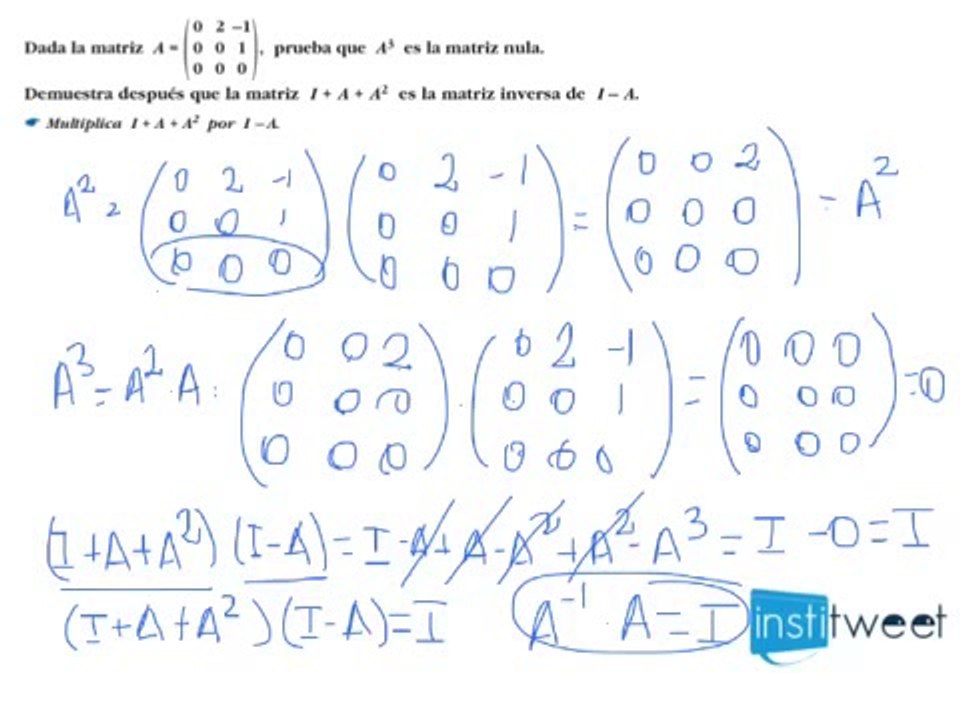 Dada la matriz A = (0 2 −1
0 0 1
0 0 0), prueba que A³ es la matriz nula.
Demuestra después que la matriz I + A + A² es la matriz inversa de I − A.
☛ Multiplica I + A + A² por I − A.
A² = (0 2 -1 (0 2 -1 = (0 0 2 = A²
0 0 1) 0 0 1) 0 0 0)
0 0 0 0 0 0 0 0 0
A³ = A² · A : (0 0 2 · (0 2 -1 = (0 0 0 = 0
0 0 0) 0 0 1) 0 0 0)
0 0 0 0 0 0 0 0 0
(I+A+A²) (I-A) = I -A+A-A²+A²-A³ = I -0 = I
(I+A+A²)(I-A)=I A⁻¹ · A = I institweet